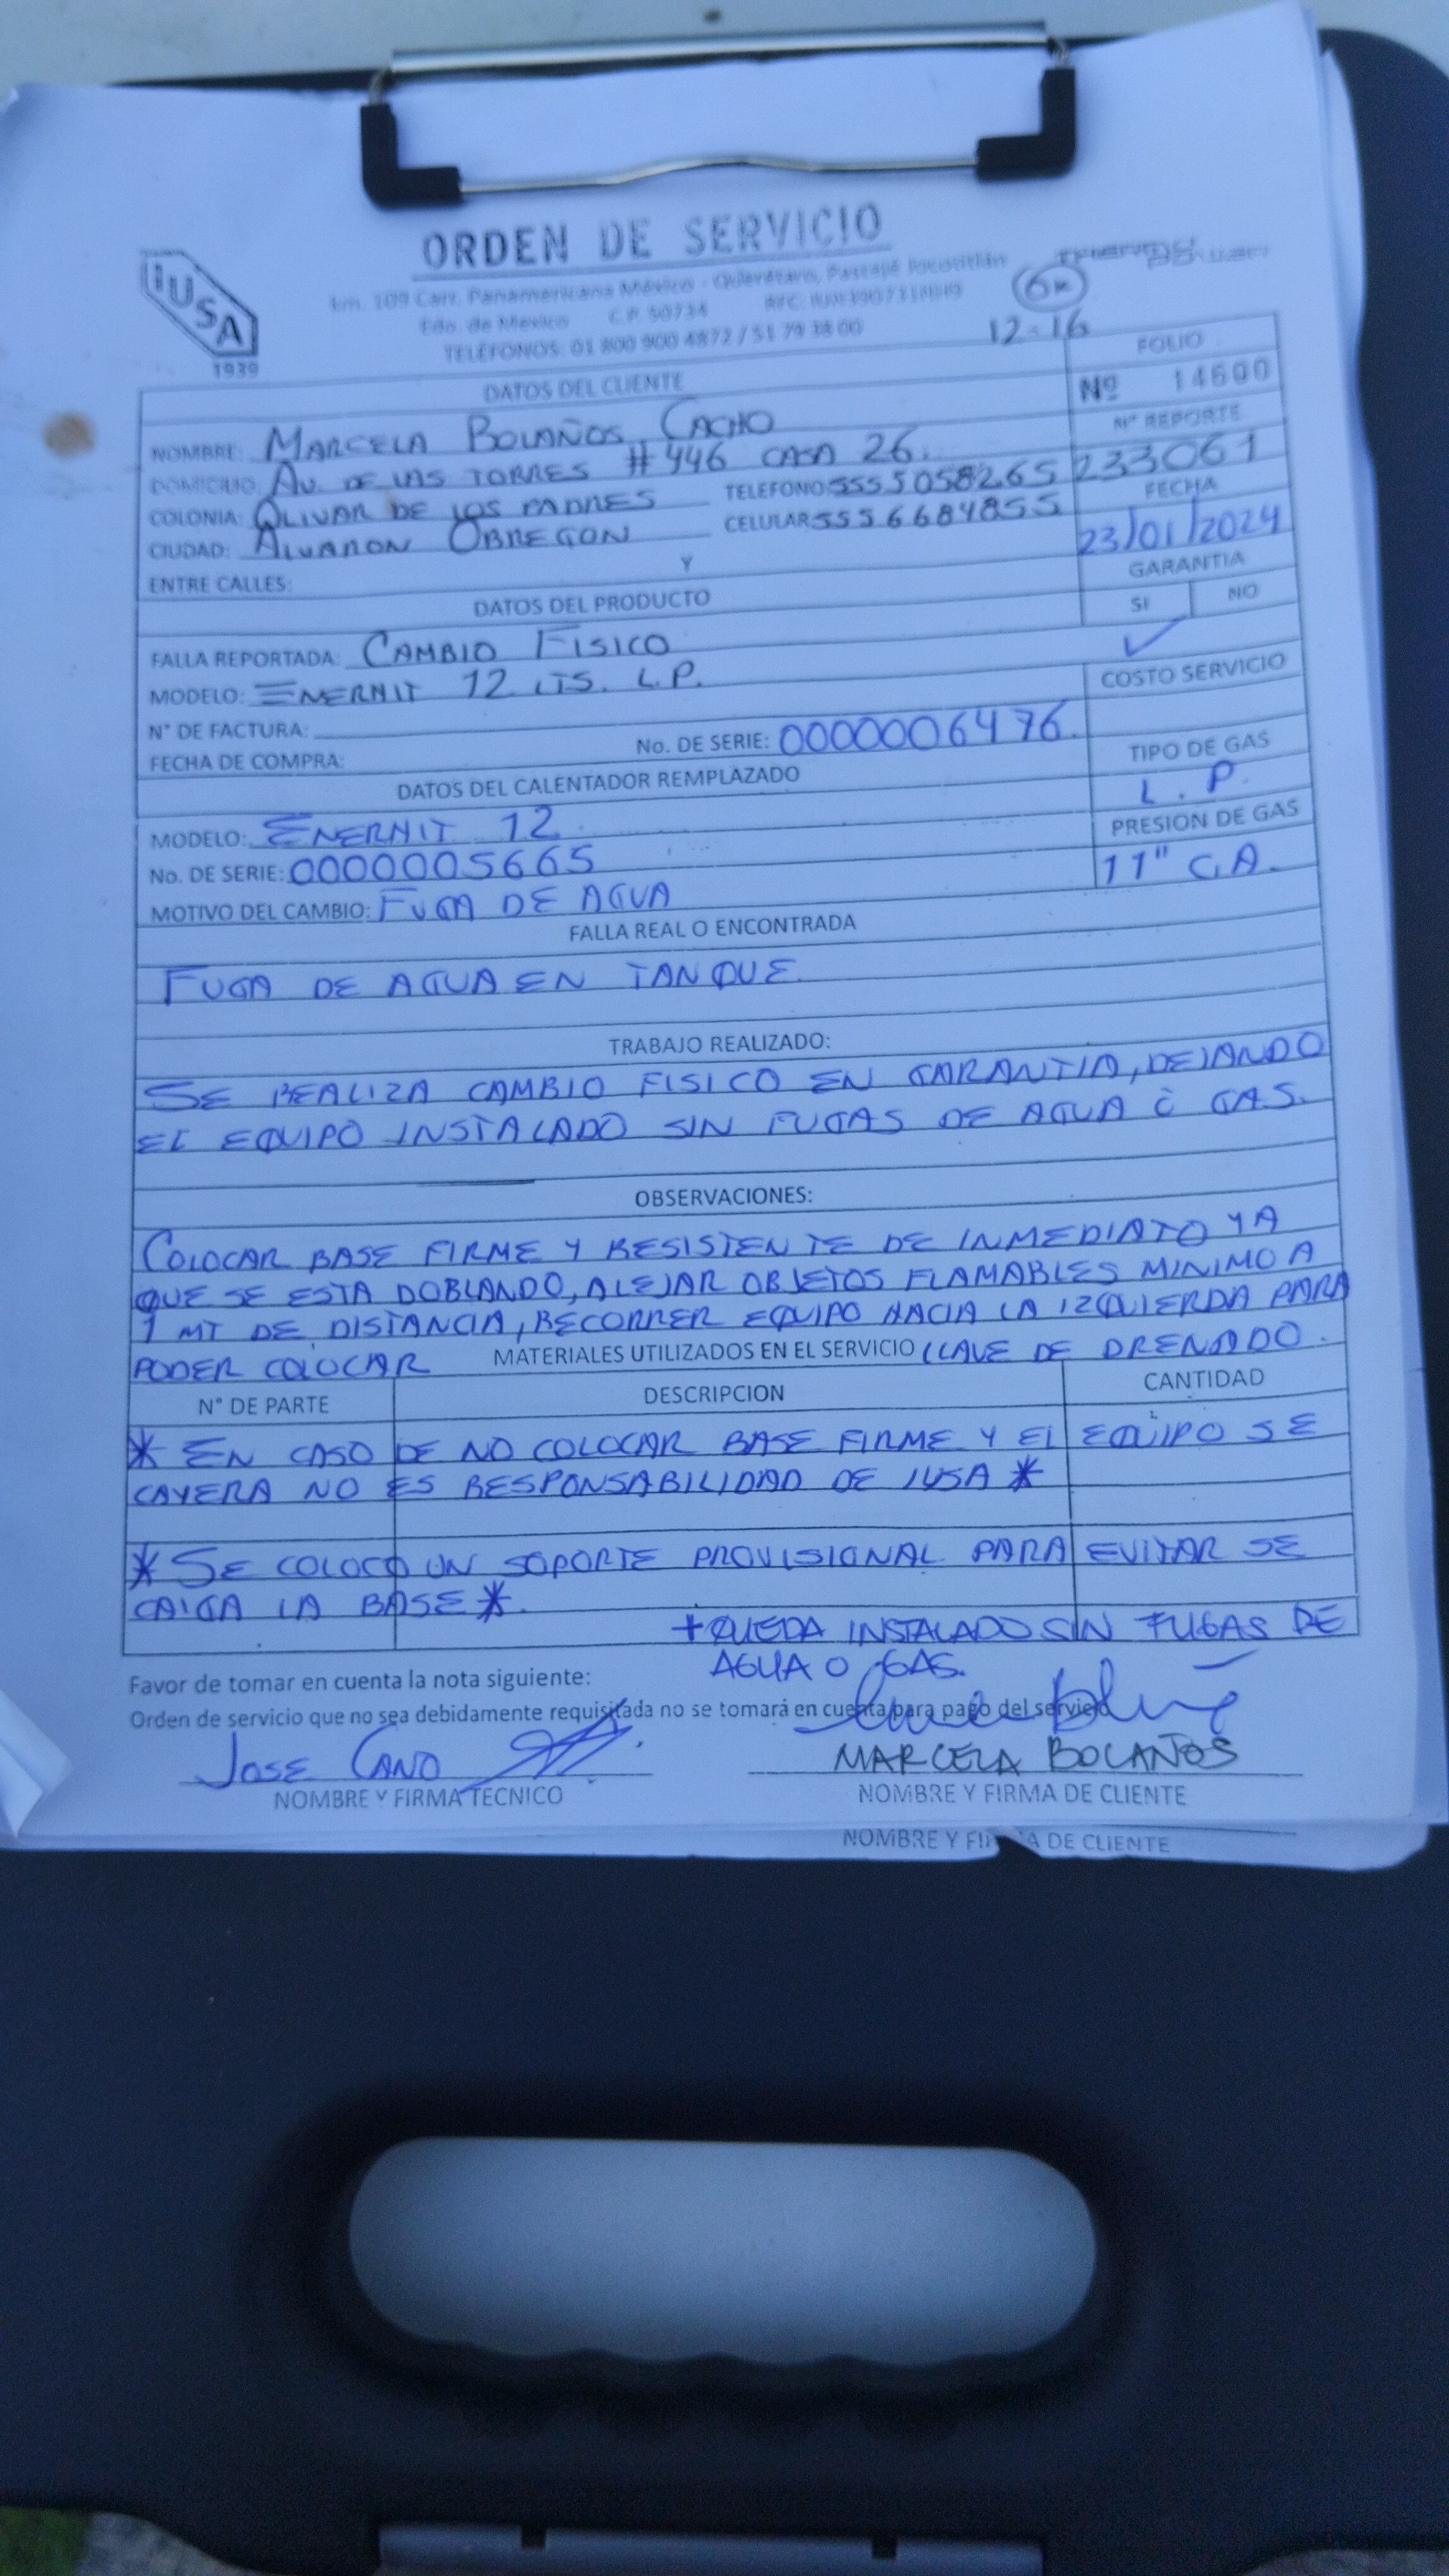 ORDEN DE SERVICIO
IUSA
1939
km. 109 Carr. Panamericana México - Querétaro, Pastejé Jocotitlán
Edo. de México C.P. 50734 RFC:
TELÉFONOS: 01 800 900 4872 / 51 79 38 00
12-16
FOLIO
DATOS DEL CLIENTE
Nº 14600
NOMBRE: MARCELA BOLAÑOS CACHO
Nº REPORTE
DOMICILIO: AV. DE LAS TORRES #446 CASA 26.
233061
COLONIA: OLIVAR DE LOS PADRES TELEFONO: 5555058265
FECHA
CIUDAD: ALVARON OBREGON CELULAR: 5556684855
23/01/2024
ENTRE CALLES: Y
GARANTIA
DATOS DEL PRODUCTO
SI NO
FALLA REPORTADA: CAMBIO FISICO
✓
MODELO: ENERHIT 12 LTS. L.P.
COSTO SERVICIO
N° DE FACTURA:
FECHA DE COMPRA: No. DE SERIE: 0000006476.
TIPO DE GAS
DATOS DEL CALENTADOR REMPLAZADO
L.P.
MODELO: ENERHIT 12.
PRESION DE GAS
No. DE SERIE: 0000005665
11" C.A.
MOTIVO DEL CAMBIO: FUGA DE AGUA
FALLA REAL O ENCONTRADA
FUGA DE AGUA EN TANQUE.
TRABAJO REALIZADO:
SE REALIZA CAMBIO FISICO EN GARANTIA, DEJANDO
EL EQUIPO INSTALADO SIN FUGAS DE AGUA O GAS.
OBSERVACIONES:
COLOCAR BASE FIRME Y RESISTENTE DE INMEDIATO YA
QUE SE ESTA DOBLANDO, ALEJAR OBJETOS FLAMABLES MINIMO A
1 MT DE DISTANCIA, RECORRER EQUIPO HACIA LA IZQUIERDA PARA
PODER COLOCAR MATERIALES UTILIZADOS EN EL SERVICIO LLAVE DE DRENADO.
N° DE PARTE DESCRIPCION CANTIDAD
* EN CASO DE NO COLOCAR BASE FIRME Y EL EQUIPO SE
CAYERA NO ES RESPONSABILIDAD DE IUSA *
* SE COLOCO UN SOPORTE PROVISIONAL PARA EVITAR SE
CAIGA LA BASE *.
+ QUEDA INSTALADO SIN FUGAS DE
AGUA O GAS.
Favor de tomar en cuenta la nota siguiente:
Orden de servicio que no sea debidamente requisitada no se tomará en cuenta para pago del servicio
JOSE CANO
MARCELA BOLAÑOS
NOMBRE Y FIRMA TECNICO
NOMBRE Y FIRMA DE CLIENTE
NOMBRE Y FIRMA DE CLIENTE